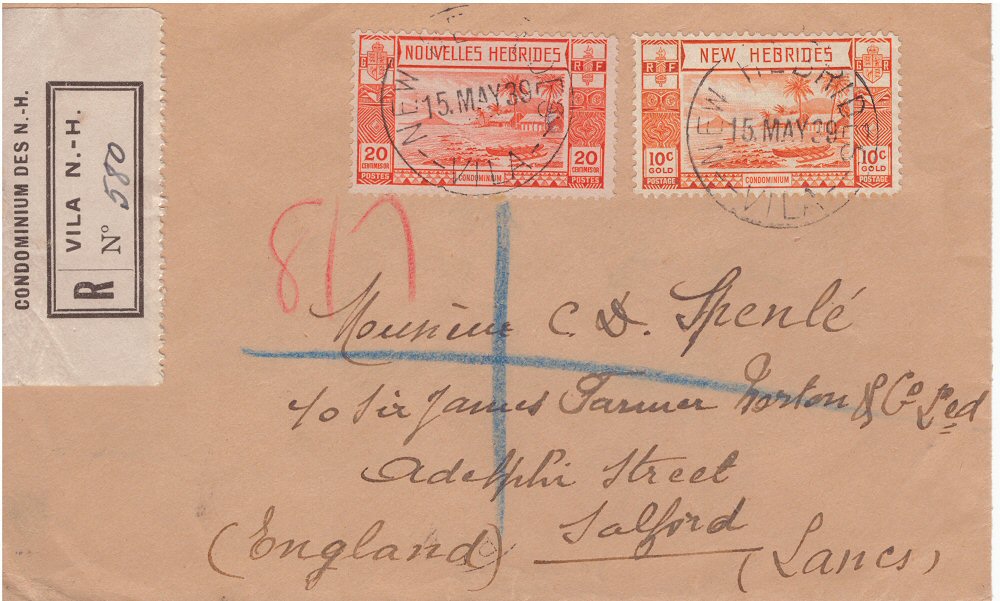 CONDOMINIUM DES N.-H.
R VILA N.-H.
Nº 580
NOUVELLES HEBRIDES
RF
20 CENTIMESOR POSTES
CONDOMINIUM
20 CENTIMESOR POSTES
NEW HEBRIDES
15.MAY39
VILA
NEW HEBRIDES
RF
10c GOLD POSTES
CONDOMINIUM
10c GOLD POSTAGE
NEW HEBRIDES
15.MAY39
VILA
Monsieur C. D. Spenlé
c/o Sir James Farmer Norton & Co Ltd
Adelphi Street
Salford
(England) (Lancs)